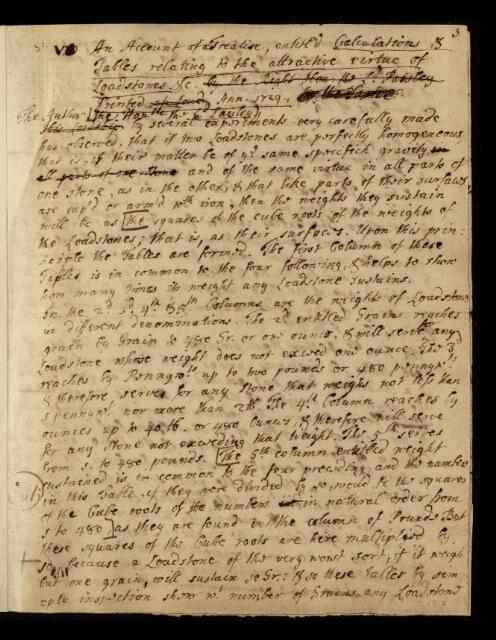 3
VII An Account of a Treatise, entitl'd Calculations &
Tables relating to the attractive virtue of
Loadstones &c. by the Right Hon. the Ld Paisley
Printed at Lond. Ann. 1729.
The Author
by several experiments very carefully made
has observed, that if two Loadstones are perfectly homogeneous
that is, if their matter be of ye same specifick gravity
all parts of one stone and of the same virtue in all parts of
one stone, as in the other, & that like parts of their surfaces
are cap'd or arm'd with iron, then the weights they sustain
will be as the squares of the cube roots of the weights of
the Loadstones; that is, as their surfaces. Upon this prin-
ciple the Tables are formed. The first Column of these
Tables is in common to the four following, & helps to show
how many times its weight any Loadstone sustains.
In the 2d 3d 4th & 5th Columns are the weights of Loadstones
in different denominations. The 2d entitled Grains reaches
grain by Grain to 480 Gr. or one ounce, & will serve any
Loadstone whose weight does not exceed one ounce. The 3d
reaches by Pennywts up to two pounds or 480 pennywts
& therefore serves for any stone that weighs not less than
a pennywt. nor more than 2lb. The 4th Column reaches by
ounces up to 40 lb. or 480 Ounces, & therefore will serve
for any stone not exceeding that weight. The 5th serves
from 1. to 480 pounds. The 6th column entitled weight
sustained is in common to the four preceding, and the numbers
in this Table, if they were divided by 50, would be the squares
of the Cube roots of the numbers in natural order from
1 to 480 as they are found in the column of Pounds But
these squares of the Cube roots are here multiplyed by
50, because a Loadstone of the very worst sort, if it weigh
but one grain, will sustain 50 Gr: & so these Tables by sim-
ple inspection show wt number of Grains any Loadstone